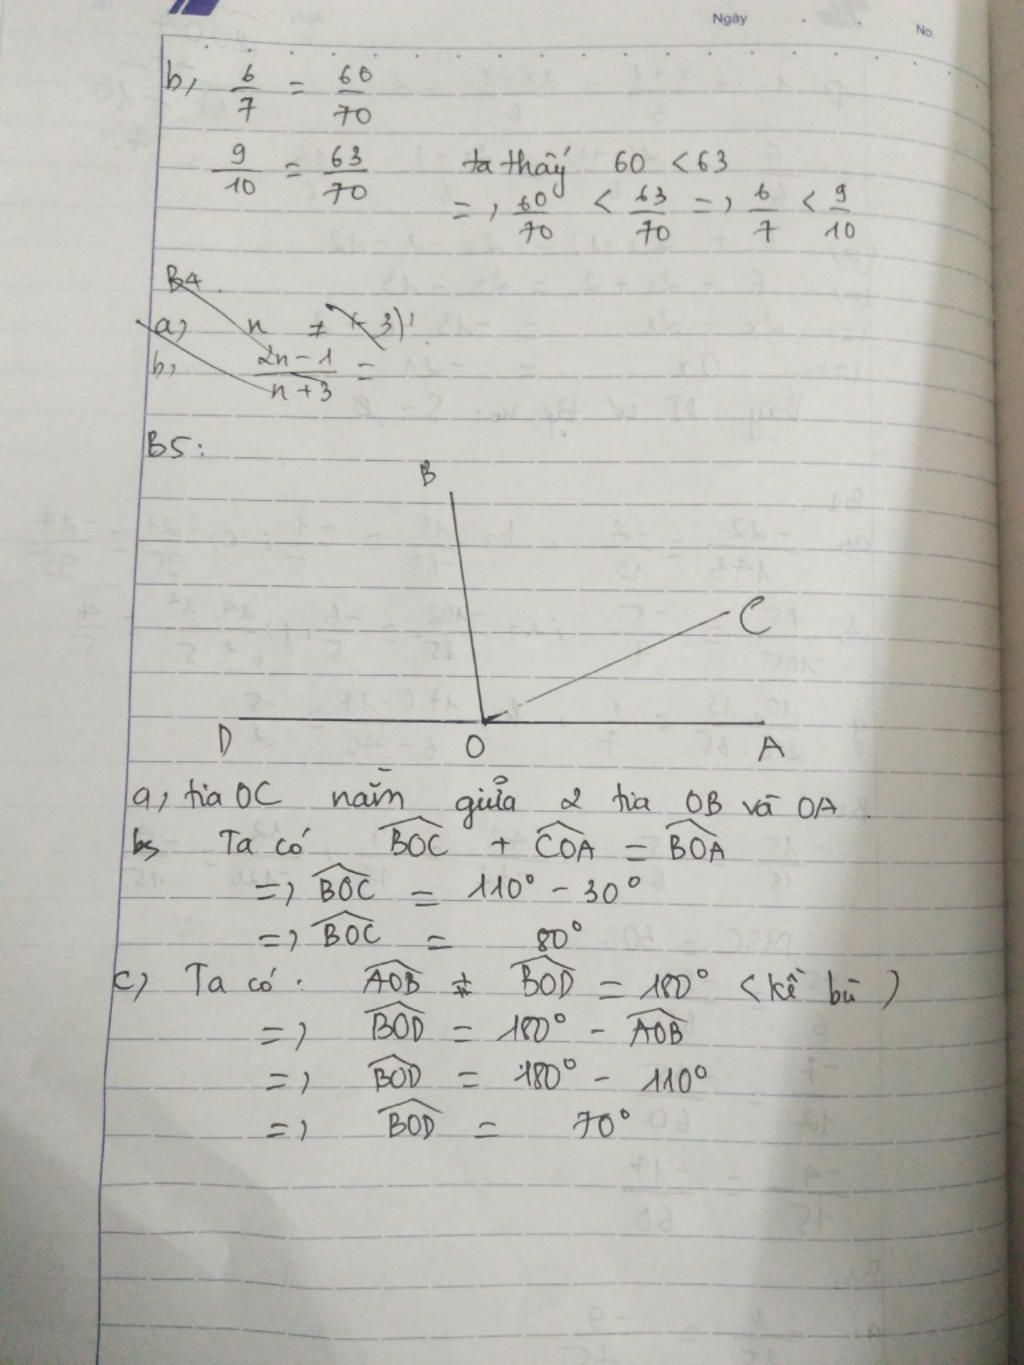 Ngày
No.
b, 6/7 = 60/70
9/10 = 63/70 ta thấy 60 < 63
=> 60/70 < 63/70 => 6/7 < 9/10
B4.
a, n ≠ (-3)
b, (2n-1)/(n+3) =
B5:
B
C
D O A
a, tia OC nằm giữa 2 tia OB và OA.
b, Ta có BOC + COA = BOA
=> BOC = 110° - 30°
=> BOC = 80°
c) Ta có: AOB + BOD = 180° (kề bù)
=> BOD = 180° - AOB
=> BOD = 180° - 110°
=> BOD = 70°